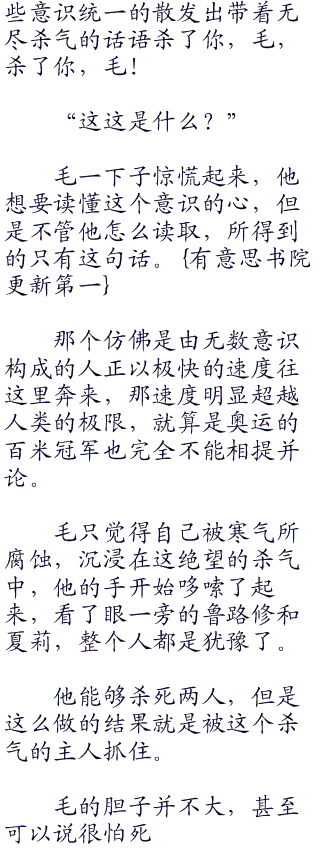 些意识统一的散发出带着无
尽杀气的话语杀了你，毛，
杀了你，毛！
“这这是什么？”
毛一下子惊慌起来，他
想要读懂这个意识的心，但
是不管他怎么读取，所得到
的只有这句话。{有意思书院
更新第一}
那个仿佛是由无数意识
构成的人正以极快的速度往
这里奔来，那速度明显超越
人类的极限，就算是奥运的
百米冠军也完全不能相提并
论。
毛只觉得自己被寒气所
腐蚀，沉浸在这绝望的杀气
中，他的手开始哆嗦了起
来，看了眼一旁的鲁路修和
夏莉，整个人都是犹豫了。
他能够杀死两人，但是
这么做的结果就是被这个杀
气的主人抓住。
毛的胆子并不大，甚至
可以说很怕死